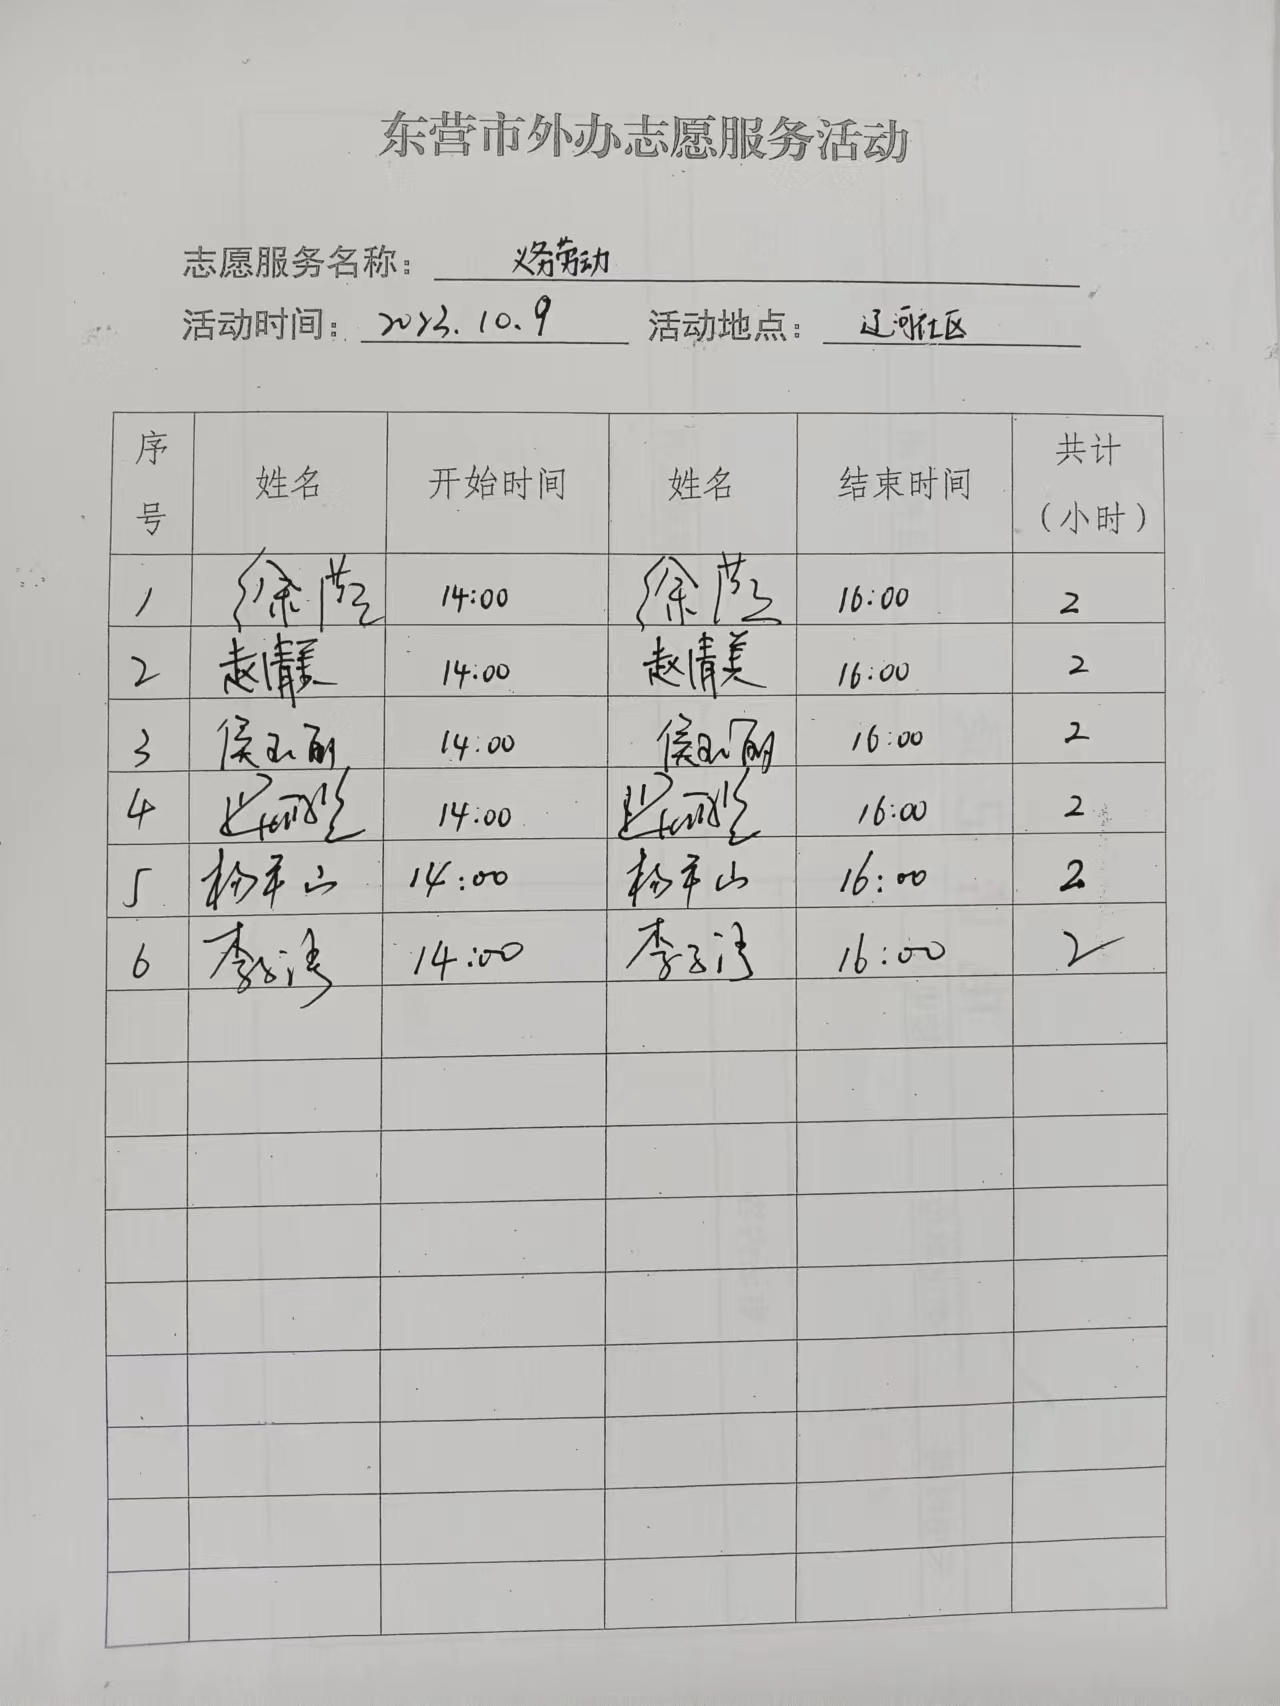 东营市外办志愿服务活动
志愿服务名称： 义务劳动
活动时间： 2023.10.9 活动地点： 辽河社区
序号 姓名 开始时间 姓名 结束时间 共计（小时）
1 徐 14:00 徐 16:00 2
2 赵倩美 14:00 赵倩美 16:00 2
3 侯玉丽 14:00 侯玉丽 16:00 2
4 14:00 16:00 2
5 杨平山 14:00 杨平山 16:00 2
6 李子涛 14:00 李子涛 16:00 2